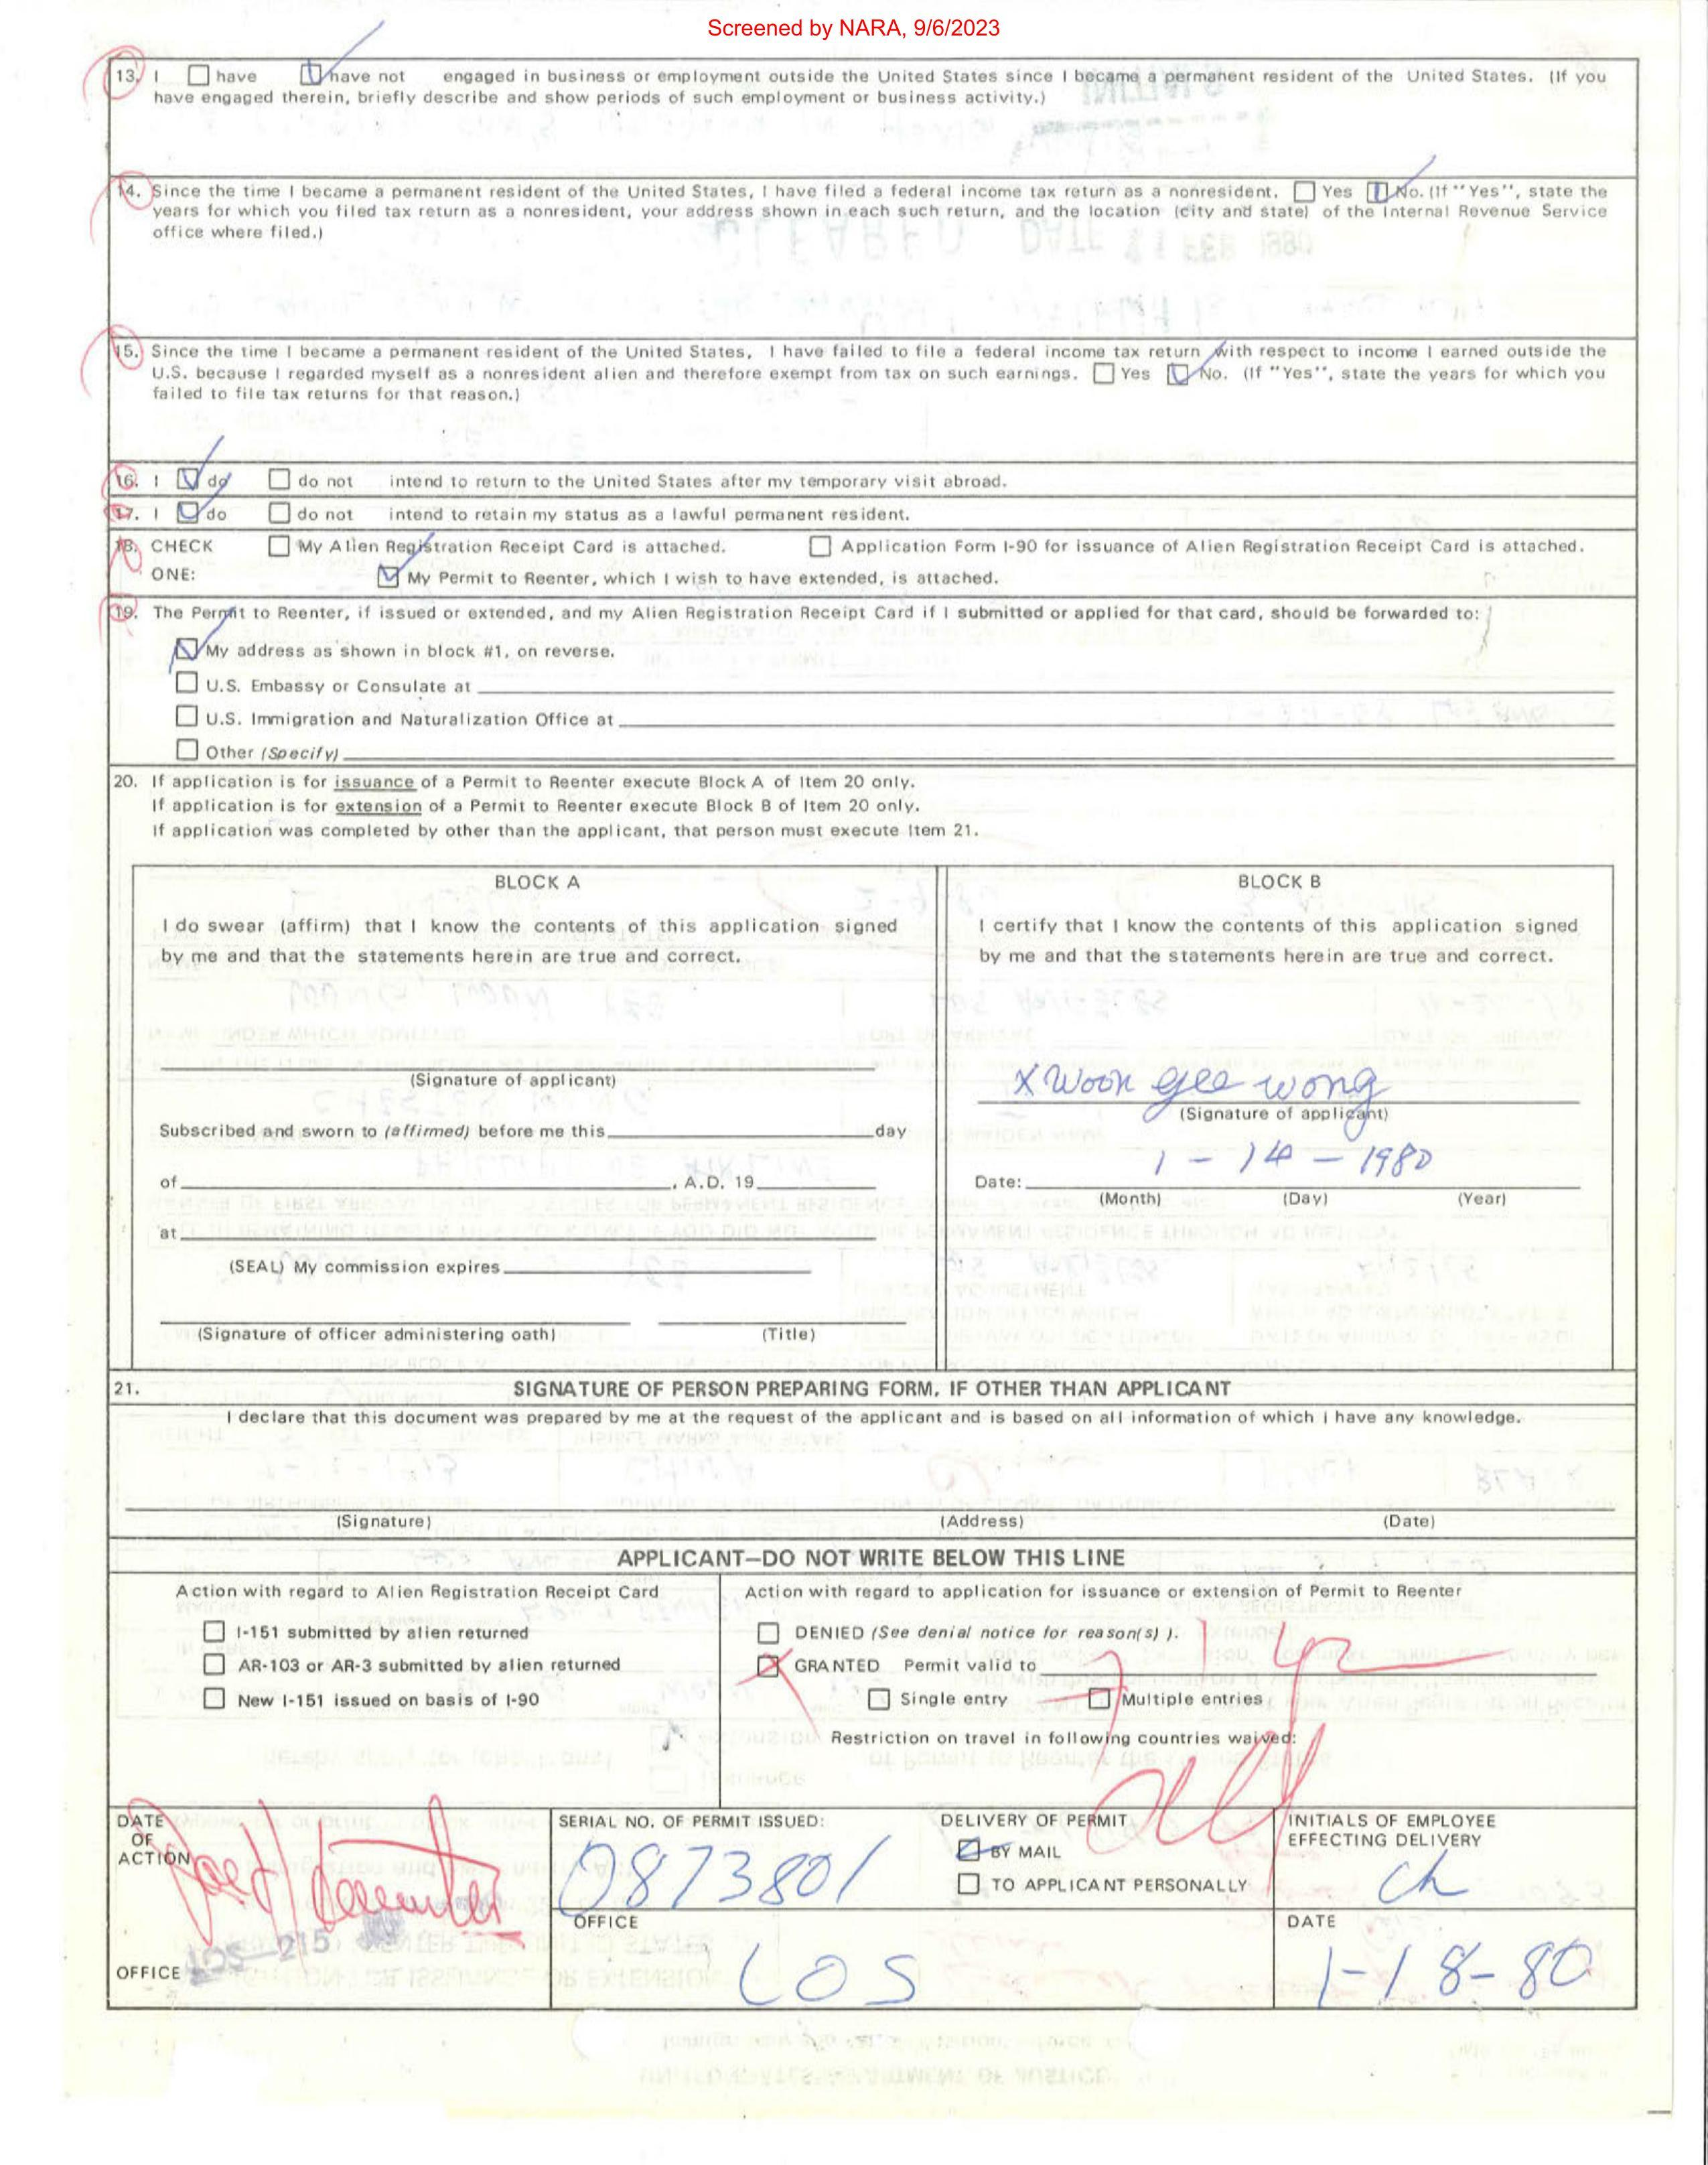 Screened by NARA, 9/6/2023
13. I have have not engaged in business or employment outside the United States since I became a permanent resident of the United States. (If you
have engaged therein, briefly describe and show periods of such employment or business activity.)
14. Since the time I became a permanent resident of the United States, I have filed a federal income tax return as a nonresident. Yes No. (If "Yes", state the
years for which you filed tax return as a nonresident, your address shown in each such return, and the location (city and state) of the Internal Revenue Service
office where filed.)
15. Since the time I became a permanent resident of the United States, I have failed to file a federal income tax return with respect to income I earned outside the
U.S. because I regarded myself as a nonresident alien and therefore exempt from tax on such earnings. Yes No. (If "Yes", state the years for which you
failed to file tax returns for that reason.)
16. I do do not intend to return to the United States after my temporary visit abroad.
17. I do do not intend to retain my status as a lawful permanent resident.
18. CHECK My Alien Registration Receipt Card is attached. Application Form I-90 for issuance of Alien Registration Receipt Card is attached.
ONE: My Permit to Reenter, which I wish to have extended, is attached.
19. The Permit to Reenter, if issued or extended, and my Alien Registration Receipt Card if I submitted or applied for that card, should be forwarded to:
My address as shown in block #1, on reverse.
U.S. Embassy or Consulate at
U.S. Immigration and Naturalization Office at
Other (Specify)
20. If application is for issuance of a Permit to Reenter execute Block A of Item 20 only.
If application is for extension of a Permit to Reenter execute Block B of Item 20 only.
If application was completed by other than the applicant, that person must execute Item 21.
BLOCK A
I do swear (affirm) that I know the contents of this application signed
by me and that the statements herein are true and correct.
(Signature of applicant)
Subscribed and sworn to (affirmed) before me this day
of , A.D. 19
at
(SEAL) My commission expires
(Signature of officer administering oath) (Title)
BLOCK B
I certify that I know the contents of this application signed
by me and that the statements herein are true and correct.
X Woon gee wong
(Signature of applicant)
1 - 14 - 1980
Date:
(Month) (Day) (Year)
21. SIGNATURE OF PERSON PREPARING FORM, IF OTHER THAN APPLICANT
I declare that this document was prepared by me at the request of the applicant and is based on all information of which I have any knowledge.
(Signature) (Address) (Date)
APPLICANT—DO NOT WRITE BELOW THIS LINE
Action with regard to Alien Registration Receipt Card
I-151 submitted by alien returned
AR-103 or AR-3 submitted by alien returned
New I-151 issued on basis of I-90
Action with regard to application for issuance or extension of Permit to Reenter
DENIED (See denial notice for reason(s) ).
GRANTED Permit valid to
Single entry Multiple entries
Restriction on travel in following countries waived:
DATE
OF
ACTION
LOS-215
OFFICE
SERIAL NO. OF PERMIT ISSUED:
0873801
OFFICE
LOS
DELIVERY OF PERMIT
BY MAIL
TO APPLICANT PERSONALLY
INITIALS OF EMPLOYEE
EFFECTING DELIVERY
Ch
DATE
1-18-80